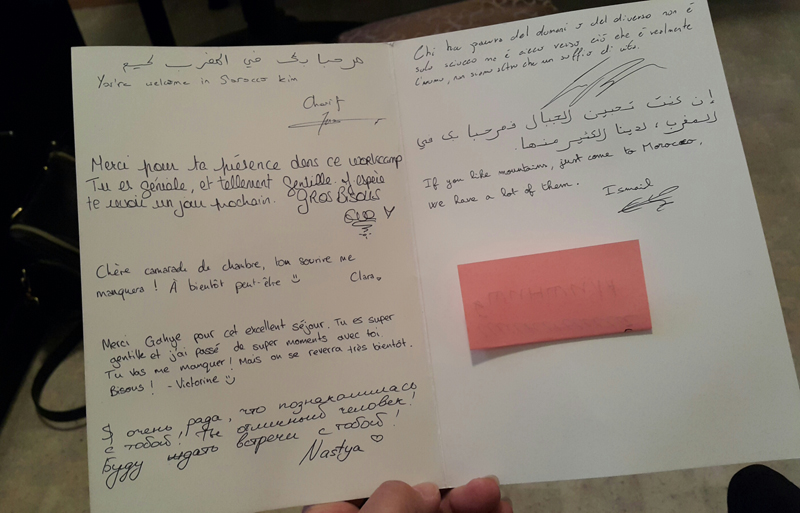 مرحبا بك في المغرب كيم
You're welcome in Sorocco kim
Charif
Merci pour ta présence dans ce workcamp
Tu es géniale, et tellement Gentille. J'espère
te revoir un jour prochain. GROS BISOUS
Chère camarade de chambre, ton sourire me
manquera ! À bientôt peut-être
Clara
Merci Gahye pour cet excellent séjour. Tu es super
gentille et j'ai passé de super moments avec toi.
Tu vas me manquer ! Mais on se reverra très bientôt.
Bisous ! - Victorine
Я очень рада, что познакомилась
с тобой! Ты отличный человек!
Буду ждать встречи с тобой!
Nastya
Chi ha paura del domani e del diverso non è
solo sciocco ma è cieco verso ciò che è realmente
l'uomo, non siamo altro che un soffio di vita.
إن كنت تحبين الجبال فمرحبا بك في
المغرب، لدينا الكثير منها.
If you like mountains, just come to Morocco,
we have a lot of them.
Ismail